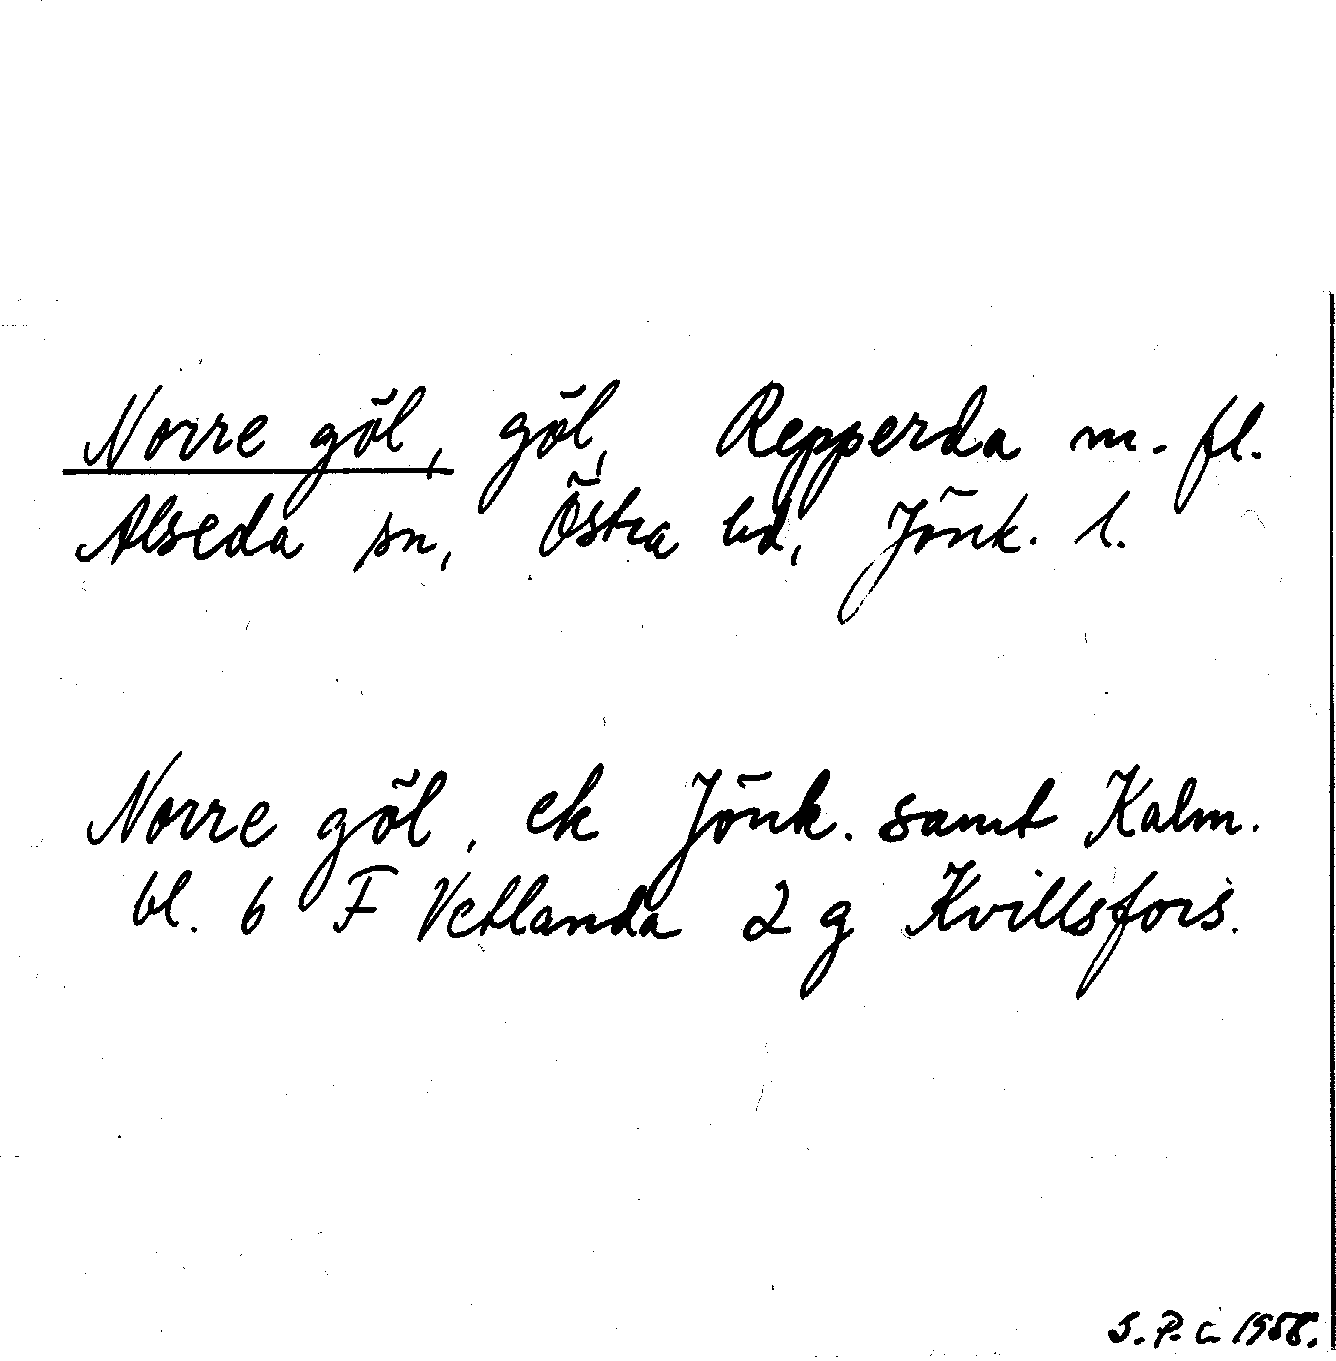 Norre göl, göl, Repperda m. fl.
Alseda sn, Östra hd, Jönk. l.
Norre göl, ek Jönk. samt Kalm.
bl. 6 F Vetlanda 2 g Kvillsfors.
S. P. c. 1958.